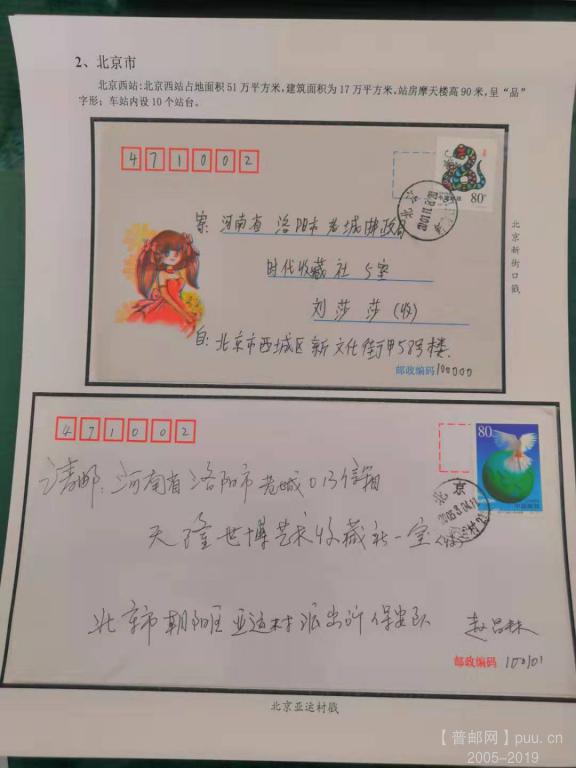 2、北京市
北京西站:北京西站占地面积51万平方米,建筑面积为17万平方米,站房摩天楼高90米,呈“品”
字形;车站内设10个站台。
471002
80
中国邮政
北京
寄:河南省 洛阳市 老城邮政局
时代收藏社 5室
刘莎莎(收)
自:北京市西城区新文化街甲58号楼.
邮政编码 100000
北京新街口戳
471002
80
北京
请邮:河南省 洛阳市 老城013信箱
天隆世博艺术收藏社一室(收)
北京市朝阳区亚运村派出所保安队
邮政编码 100101
北京亚运村戳
【普邮网】puu.cn
2005-2019